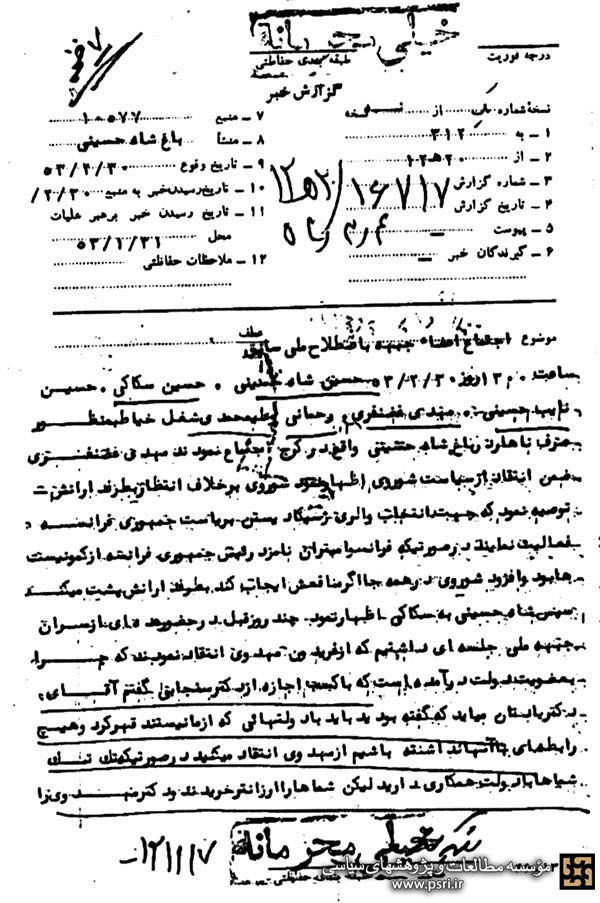 خیلی محرمانه
طبقه بندی حفاظتی
درجه فوریت
گزارش خبر
نسخه شماره یک از نسخه
۱ - به ۳۱۲
۲ - از ۱۲ ه‍ ۲۰
۳ - شماره گزارش ۱۶۷۱۷ / ۱۲ ه‍ ۲۰
۴ - تاریخ گزارش
۵ - پیوست
۶ - گیرندگان خبر
۷ - منبع ۱۰۵۷۷
۸ - منشأ باغ شاه حسینی
۹ - تاریخ وقوع ۵۳/۲/۳۰
۱۰ - تاریخ رسیدن خبر به منبع ۲/۳۰/
۱۱ - تاریخ رسیدن خبر برهبر عملیات
محل ۵۳/۲/۳۱
۱۲ - ملاحظات حفاظتی
عطف
موضوع اجتماع اعضاء جبهه باصطلاح ملی سابق
ساعت ۱۳۰۰ روز ۵۳/۲/۳۰ حسین شاه حسینی ، حسین سکاکی ، حسین
نایب حسینی ، مهدی غضنفری ، رحمانی و علیمحمدی شغل خیاط بمنظور
صرف ناهار در باغ شاه حسینی واقع در کرج اجتماع نمودند مهدی غضنفری
ضمن انتقاد از سیاست شوروی اظهار نمود شوروی بر خلاف انتظار بطرفدارانش
توصیه نمود که جهت انتخاب والری ژیسکار دستن بریاست جمهوری فرانسه
فعالیت نمایند در صورتیکه فرانسوا میتران نامزد رئیس جمهوری فرانسه از کمونیست
ها بود و افزود شوروی در همه جا اگر منافعش ایجاب کند بطرفدارانش پشت میکند
سپس شاه حسینی به سکاکی اظهار نمود چند روز قبل در حضور عده ای از سران
جبهه ملی جلسه ای داشتیم که از فریدون مهدوی انتقاد نمودند که چرا
بعضویت دولت در آمده است که با کسب اجازه از دکتر سنجابی گفتم آقای
دکتر یادتان بیاید که گفته بودید باید با دولتهائی که از ما نیستند قهر کرد و هیچ
رابطه ای با آنها نداشته باشیم از مهدوی انتقاد میکنید در صورتیکه تک تک
شماها با دولت همکاری دارید لیکن شماها را ارزانتر خریدند و دکتر مهدوی را
خیلی محرمانه
طبقه بندی حفاظتی
مؤسسه مطالعات و پژوهشهای سیاسی
www.psri.ir